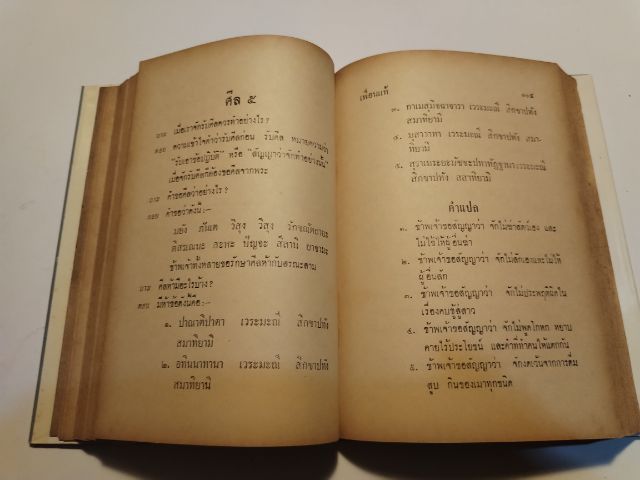 ศีล ๕
ถาม เมื่อเราจักรับศีลควรทำอย่างไร ?
ตอบ ความเข้าใจคำว่ารับศีลก่อน รับศีล หมายความถึง
"รับเอาข้อปฏิบัติ" หรือ "สัญญาว่าจักทำอย่างนั้น"
เมื่อจักรับศีลก็ต้องขอศีลจากพระ
ถาม คำขอศีลว่าอย่างไร ?
ตอบ คำขอว่าดังนี้ :-
มะยัง ภันเต วิสุง วิสุง รักขะณัตถายะ
ติสะระเณนะ สะหะ ปัญจะ สีลานิ ยาจามะ
ข้าพเจ้าทั้งหลายขอรักษาศีลห้ากับสรณะสาม
ถาม ศีลห้ามีอะไรบ้าง ?
ตอบ มีห้าข้อดังนี้คือ :-
๑. ปาณาติปาตา เวระมะณี สิกขาปะทัง
สมาทิยามิ
๒. อทินนาทานา เวระมะณี สิกขาปะทัง
สมาทิยามิ
เพื่อนแท้ ๑๐๕
๓. กาเมสุมิจฉาจารา เวระมะณี สิกขาปะทัง
สมาทิยามิ
๔. มุสาวาทา เวระมะณี สิกขาปะทัง สมา-
ทิยามิ
๕. สุราเมระยะมัชชะปะมาทัฏฐานา เวระมะณี
สิกขาปะทัง สมาทิยามิ
คำแปล
๑. ข้าพเจ้าขอสัญญาว่า จักไม่ฆ่าสัตว์เอง และ
ไม่ใช้ให้ผู้อื่นฆ่า
๒. ข้าพเจ้าขอสัญญาว่า จักไม่ลักเองและไม่ใช้
ผู้อื่นลัก
๓. ข้าพเจ้าขอสัญญาว่า จักไม่ประพฤติผิดใน
เรื่องคบชู้สู่สาว
๔. ข้าพเจ้าขอสัญญาว่า จักไม่พูดโกหก หยาบ
คายไร้ประโยชน์ และคำที่ทำคนให้แตกกัน
๕. ข้าพเจ้าขอสัญญาว่า จักงดเว้นจากการดื่ม
สูบ กินของเมาทุกชนิด